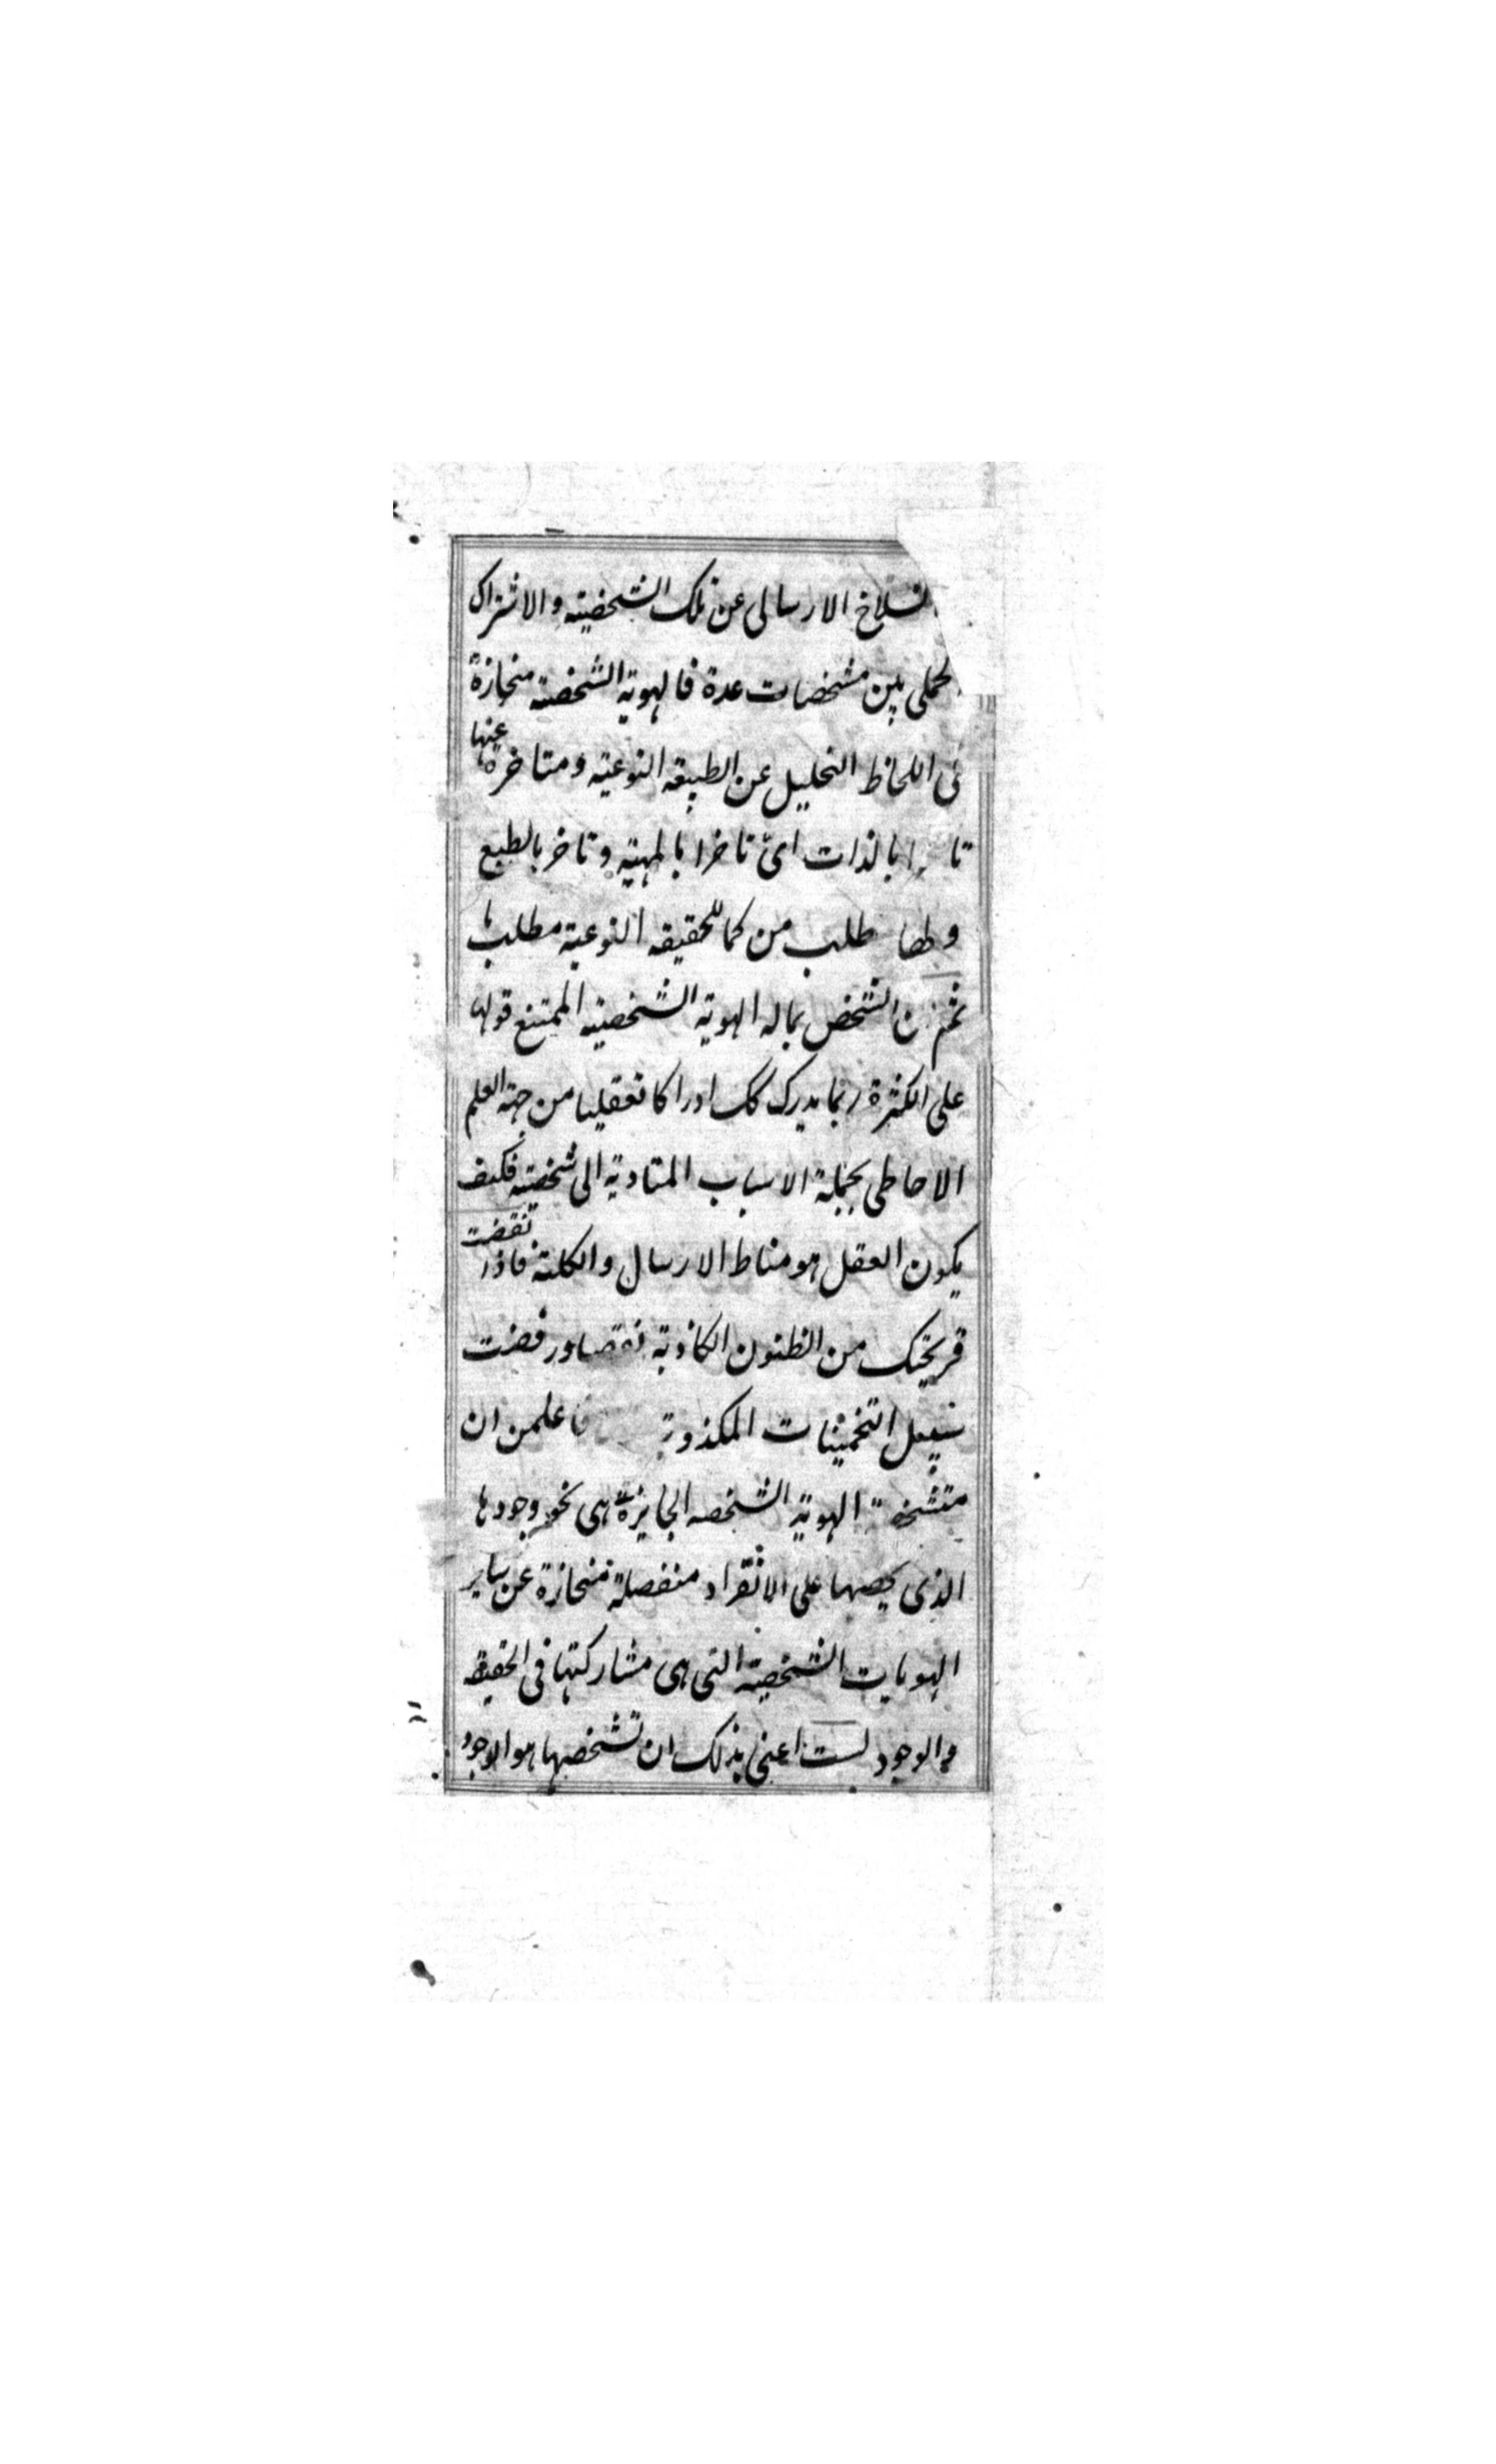 لسلاخ الارسالى عن تلك الشخصية والاشتراك
لحملى بين مشخصات عدة فالهوية الشخصية منحازة
فى اللحاظ التحليل عن الطبيعة النوعية ومتاخرة عنها
بالذات اى تاخرا بالمهية وتاخر بالطبع
طلب من كمالحقيقه النوعية مطلب
ثم الشخص بماله الهوية الشخصية الممتنع قولها
على الكثرة ربما يدرك كك ادراكا تعقليا من جهة العلم
الاحاطى بجملة الاسباب المتادية الى شخصيته فكيف
يكون العقل هو مناط الارسال والكلية فاذا نقضت
قريحتك من الظنون الكاذبة نقصا ورفضت
سبيل التخمينات المكذوبة فاعلمن ان
الهوية الشخصه الجايزة هى نحو وجودها
الذى يخصها على الانفراد منفصلة منحازة عن ساير
الهويات الشخصية التى هى مشاركتها فى الحقيقة
والوجود لست اعنى بذلك ان تشخصها هو الوجود